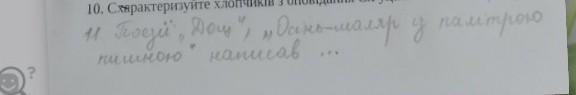 10. Схарактеризуйте хлопчиків з оповідання
11 Поезії „Дощ", „Осінь-маляр у палітрою
пишною" написав ...
?